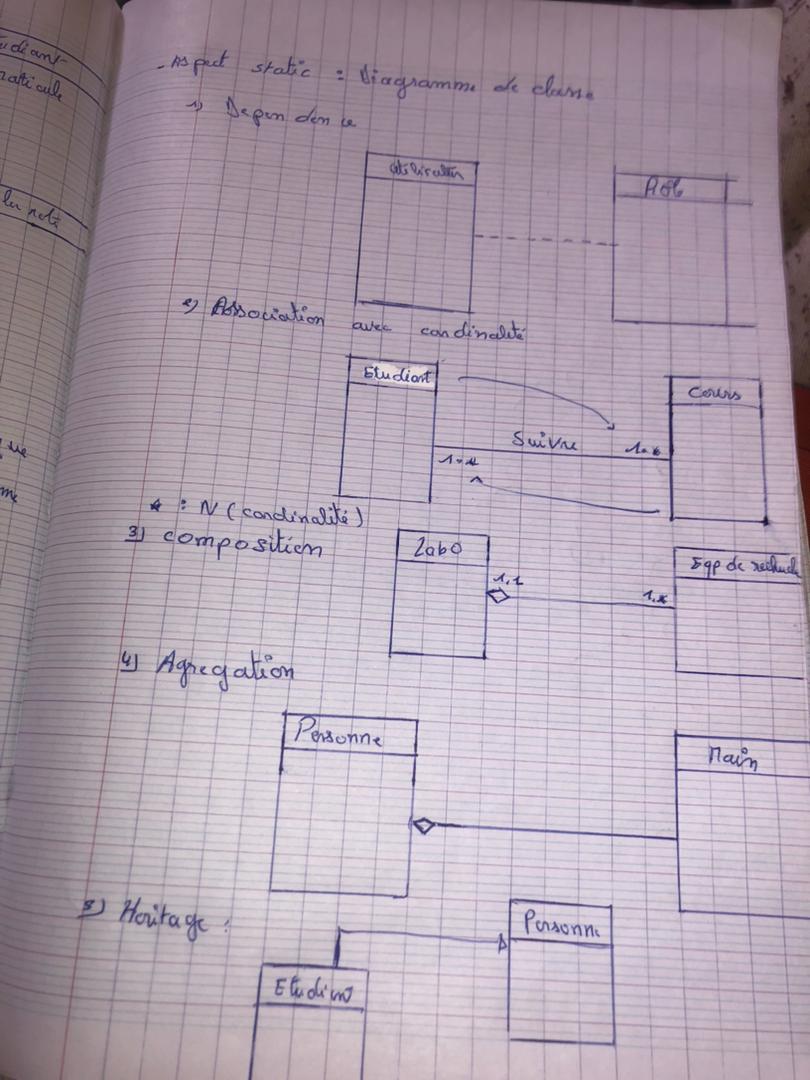 udiant
raticule
la note
ue
me
- Aspect static : Diagramme de classe
1) Dependence
Utilisateur
Rôle
2) Association avec cardinalité
Etudiant
Cours
Suivre
1..*
1..*
* : N (cardinalité)
3) composition
Labo
Eqp de recherche
1,1
1,*
4) Agregation
Personne
Main
5) Heritage :
Personne
Etudiant